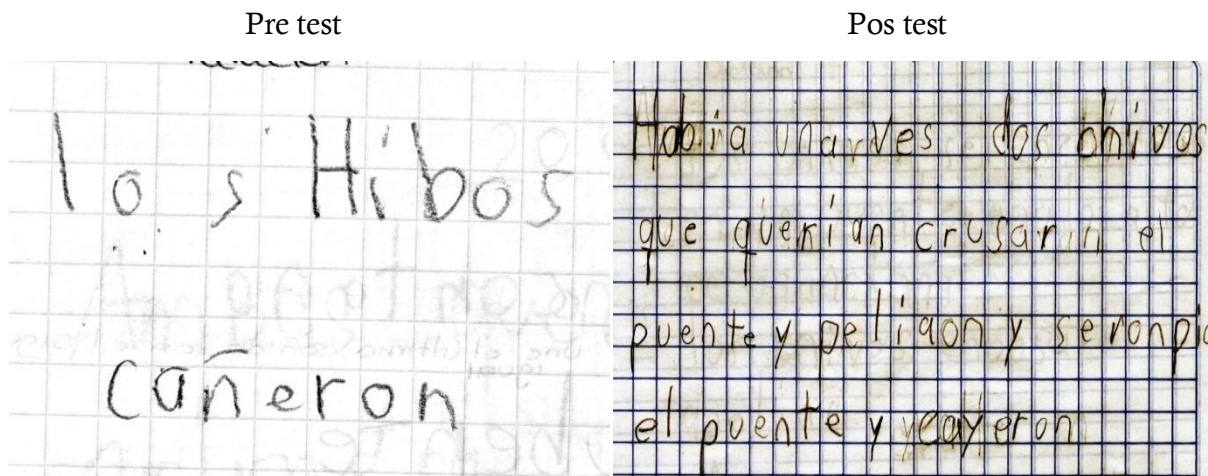 Pre test
los Hibos
cañeron
Pos test
Habia unarves dos chivos
que querian crusarin el
puente y peliaon y seronpio
el puente y ycayeron